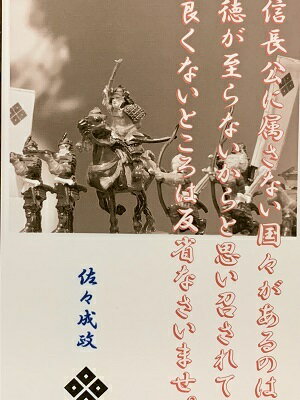 信長公に属さない国々があるのは
徳が至らないからと思い召されて
良くないところは反省なさいませ。
佐々成政